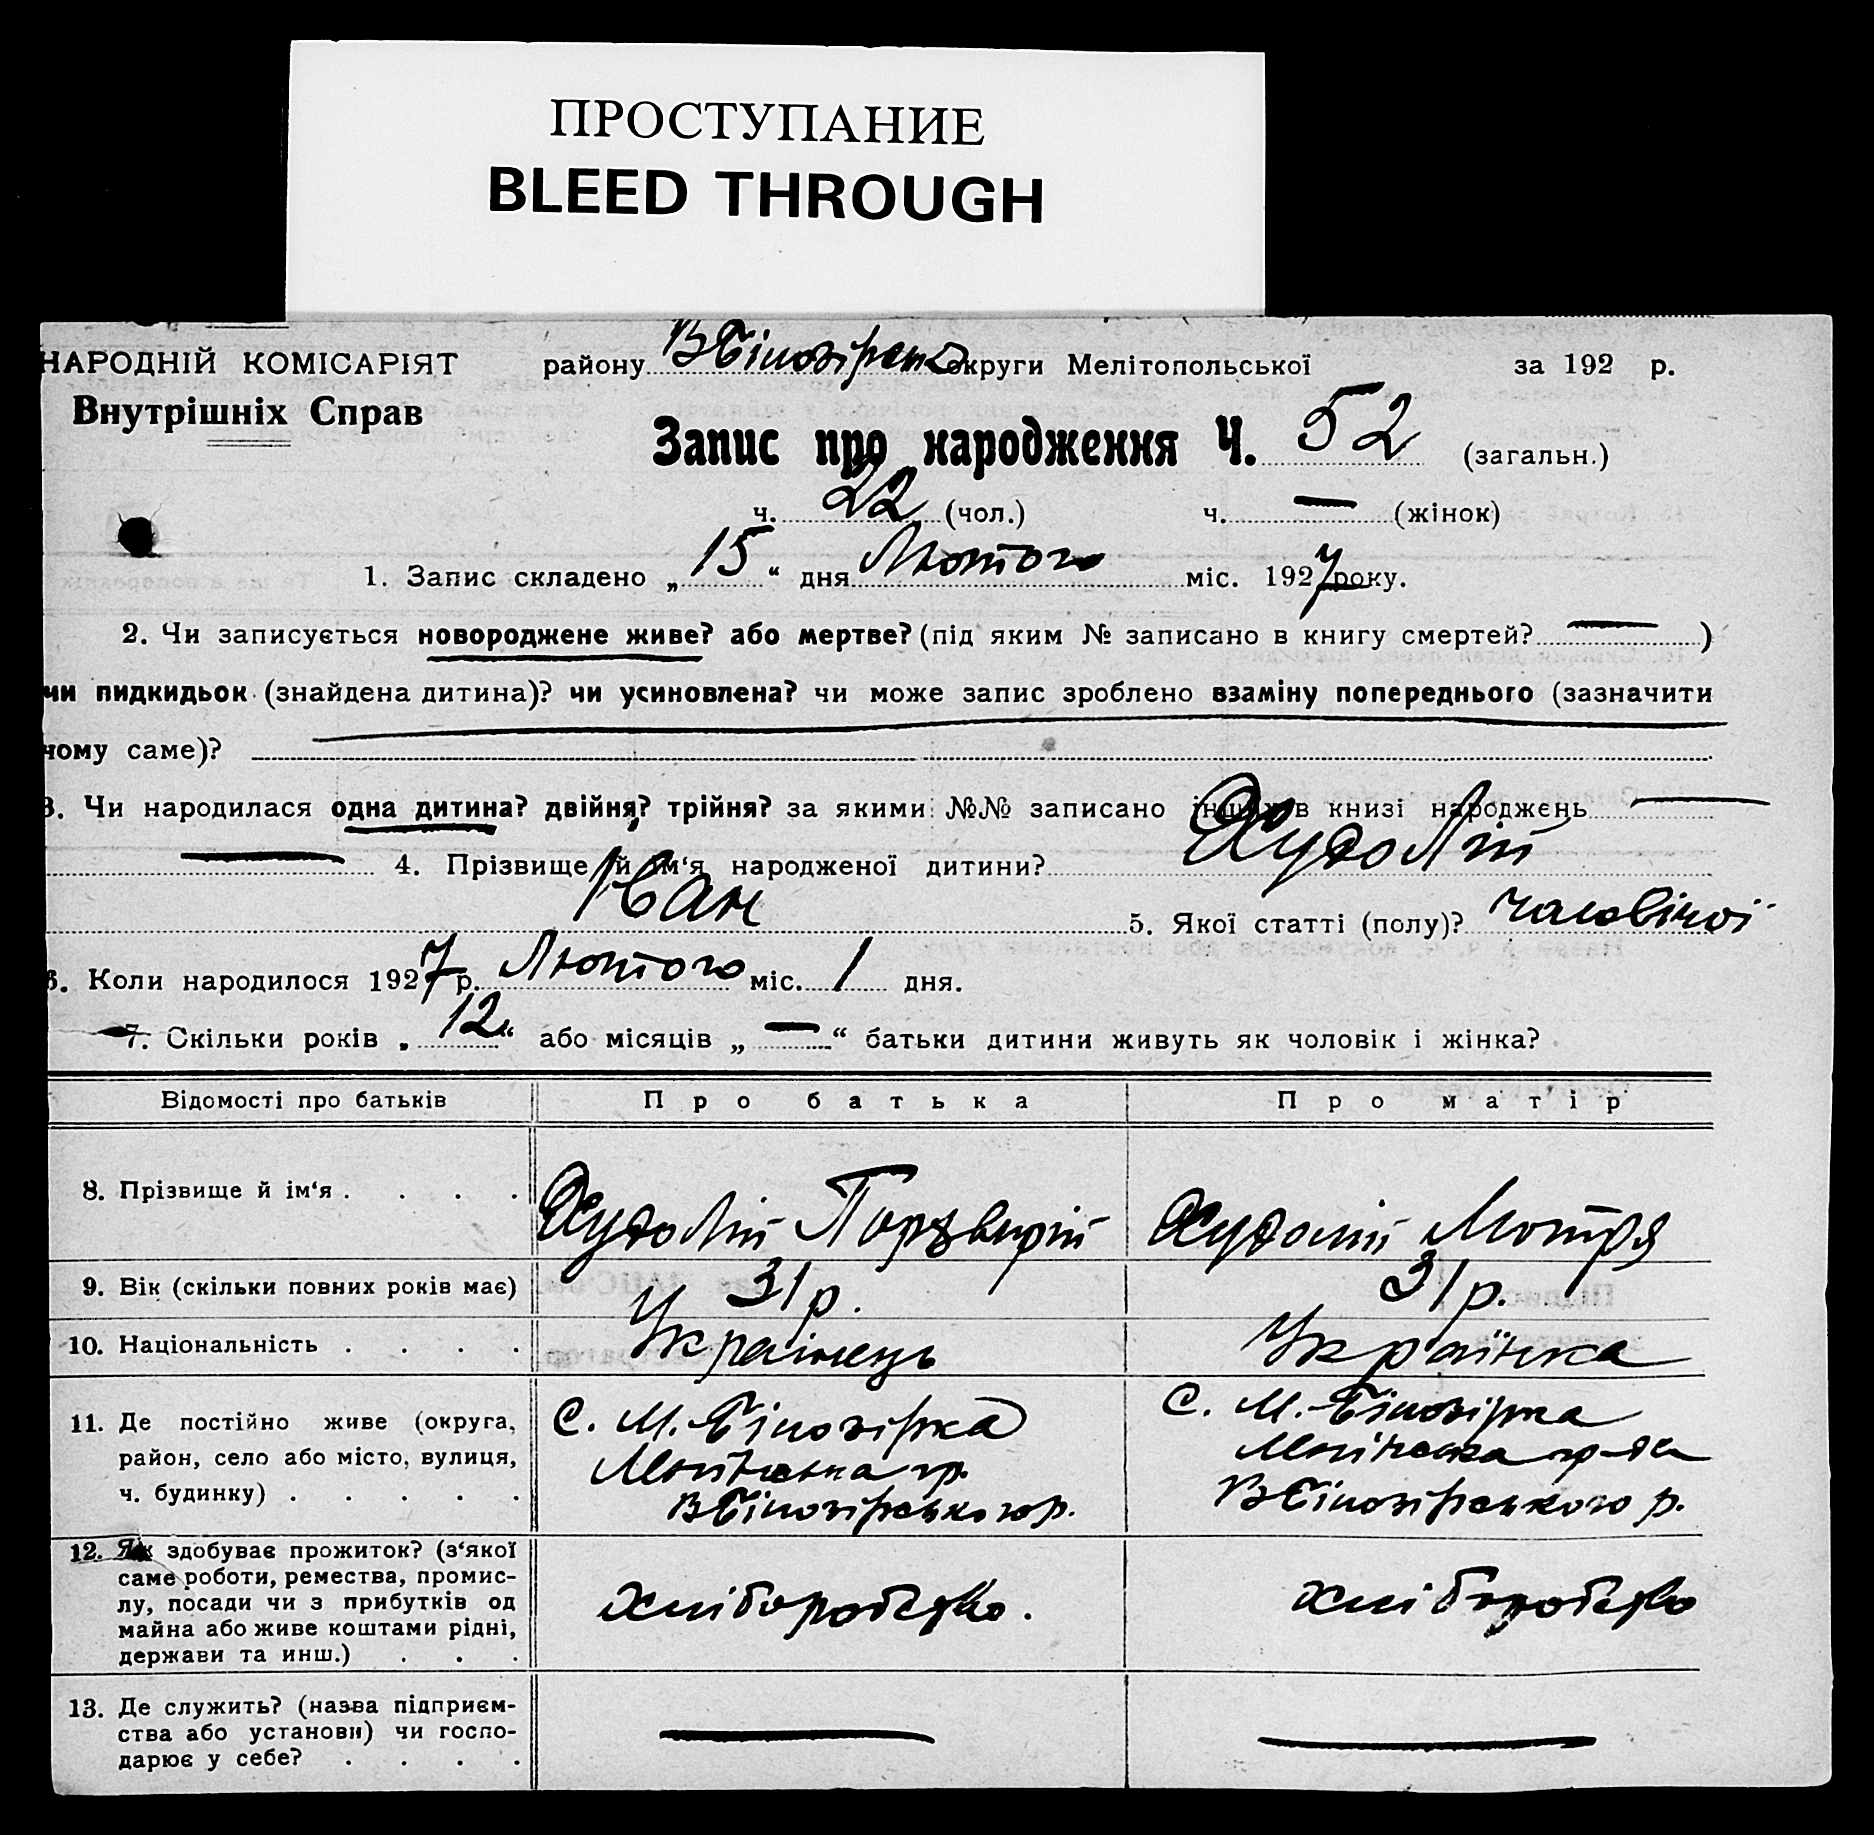 ПРОСТУПАНИЕ
BLEED THROUGH
НАРОДНІЙ КОМІСАРІЯТ району В Білозірськ округи Мелітопольської за 192 р.
Внутрішніх Справ
Запис про народження Ч. 52 (загальн.)
ч. 22 (чол.) ч. — (жінок)
1. Запис складено „15“ дня Лютого міс. 1927 року.
2. Чи записується новороджене живе? або мертве? (під яким № записано в книгу смертей? — )
чи пидкидьок (знайдена дитина)? чи усиновлена? чи може запис зроблено взаміну попереднього (зазначити
чому саме)?
3. Чи народилася одна дитина? двійня? трійня? за якими №№ записано інших в книзі народжень —
— 4. Прізвище й ім‘я народженої дитини? Худолій
Іван 5. Якої статті (полу)? чоловічої
6. Коли народилося 1927 р. Лютого міс. 1 дня.
7. Скільки років „12“ або місяців „—“ батьки дитини живуть як чоловік і жінка?
Відомості про батьків Про батька Про матір
8. Прізвище й ім‘я . . . . Худолій Порфирій Худолій Мотря
9. Вік (скільки повних років має) 31 р. 31 р.
10. Національність . . . . Українець Українка
11. Де постійно живе (округа, С. М. Білозірка С. М. Білозірка
район, село або місто, вулиця,
ч. будинку) . . . . . В Білозірського р. В Білозірського р.
12. Як здобуває прожиток? (з‘якої
саме роботи, ремества, промис-
лу, посади чи з прибутків од хліборобство. хліборобство
майна або живе коштами рідні,
держави та инш.) . . .
13. Де служить? (назва підприєм-
ства або установи) чи госпо- — —
дарює у себе? . . . .